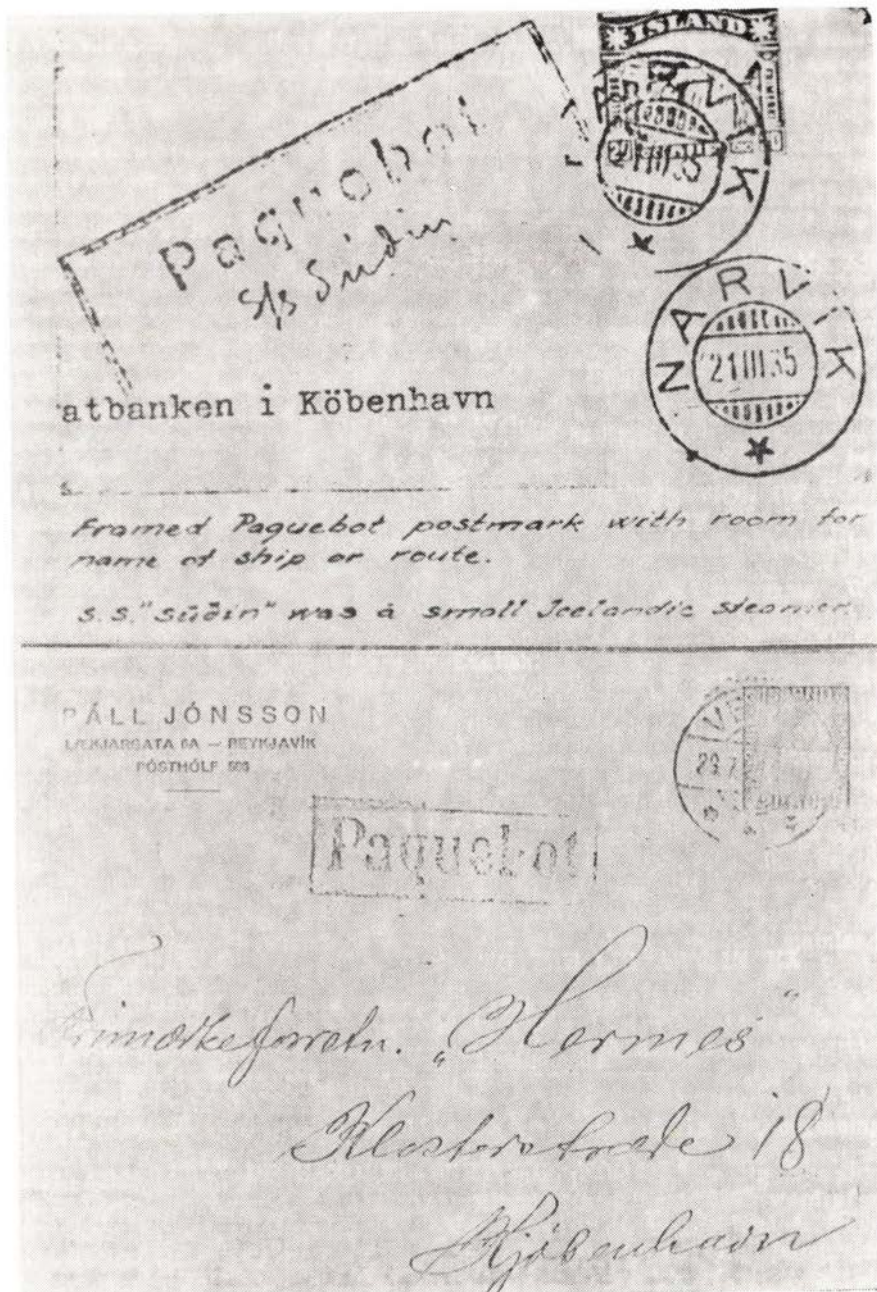 ISLAND
NARVIK
21 III 35
Paquebot
S/s Súdin
NARVIK
21 III 35
atbanken i Köbenhavn
Framed Paquebot postmark with room for
name of ship or route.
S.S. "Súðin" was a small Icelandic steamer.
PÁLL JÓNSSON
LÆKJARGATA 6A — REYKJAVÍK
PÓSTHÓLF
29.7
Paquebot
Frimærkeforretn. „Hermes"
Klosterstræde 18
Kjöbenhavn